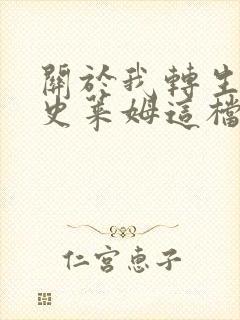 關於我轉生
史萊姆這檔
仁宮惠子